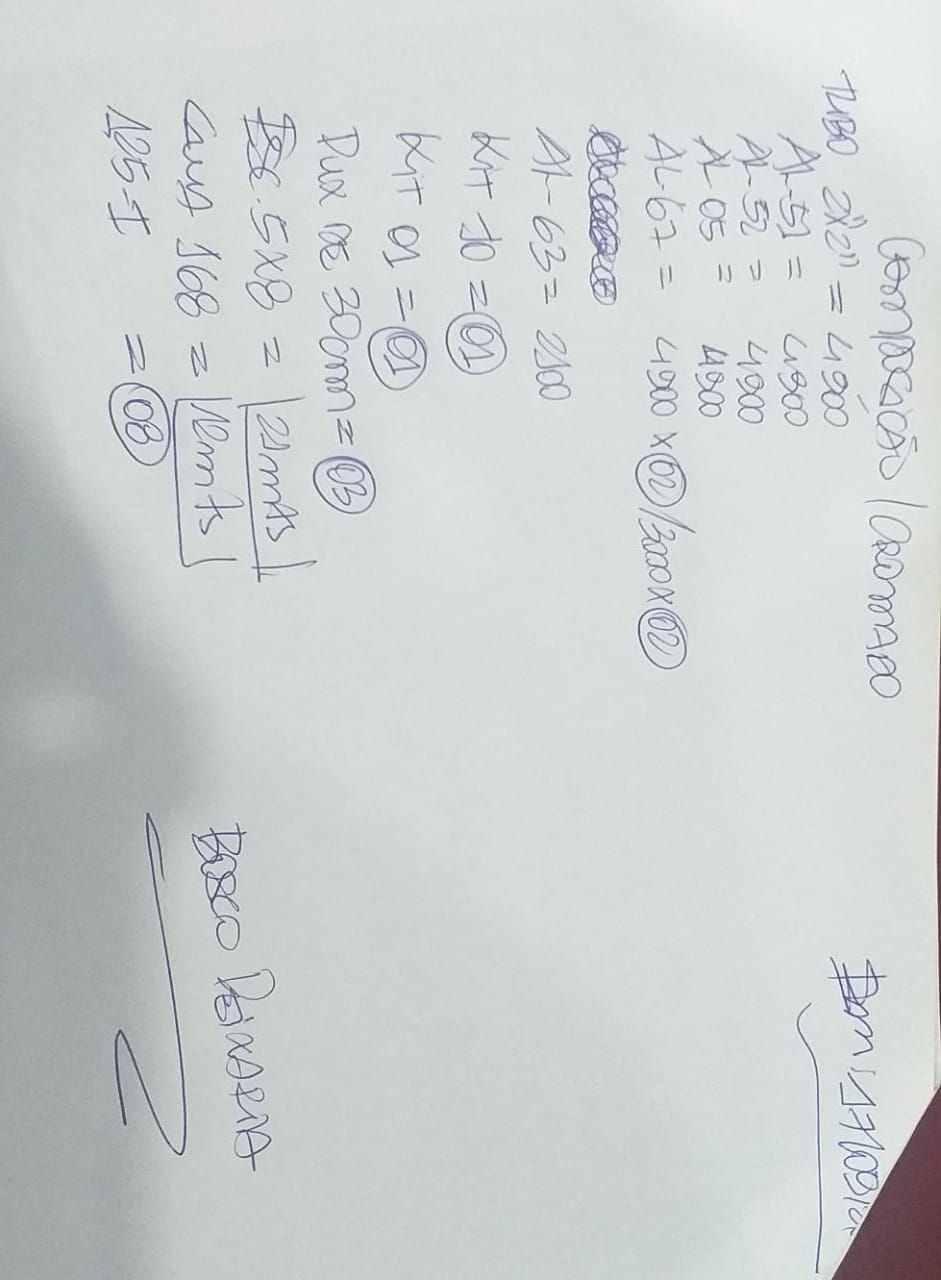 Composição / Cromado
TUBO 2"x2" = 4900
AL-51 = 4900
AL-52 = 4900
AL 05 = 4900
AL-67 = 4900 x 02 / 3000 x 02
AL-63 = 2100
KIT 10 = 01
KIT 01 = 01
PUX DE 30cm = 03
ESC. 5x8 = 21mts
168 = 12mts
125-I = 08
Bosco